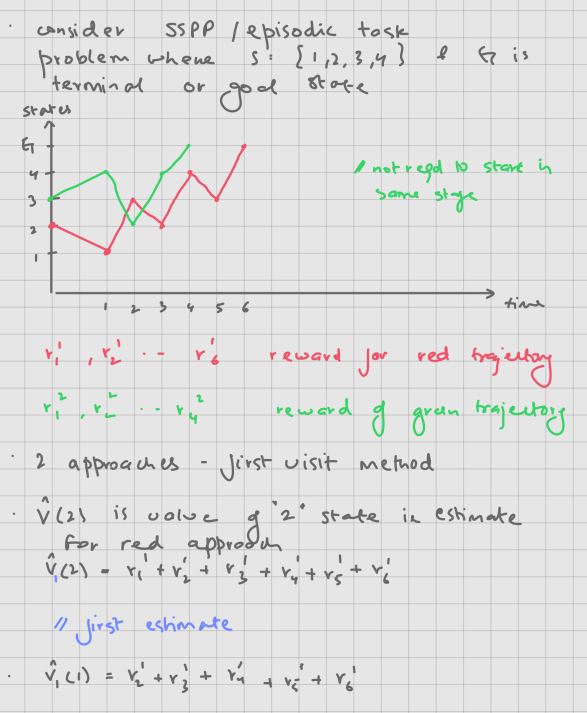 · consider SSPP / episodic task
problem where S: {1,2,3,4} & G is
terminal or goal state
states
G
4
3
2
1
// not reqd to start in
same stage
1 2 3 4 5 6
time
r₁¹, r₂¹ ·- r₆¹ reward for red trajectory
r₁², r₂² ·- r₄² reward of green trajectory
· 2 approaches - first visit method
· V̂(2) is value of "2" state in estimate
for red approach
V̂₁(2) = r₁¹ + r₂¹ + r₃¹ + r₄¹ + r₅¹ + r₆¹
// first estimate
· V̂₁(1) = r₂¹ + r₃¹ + r₄¹ + r₅¹ + r₆¹